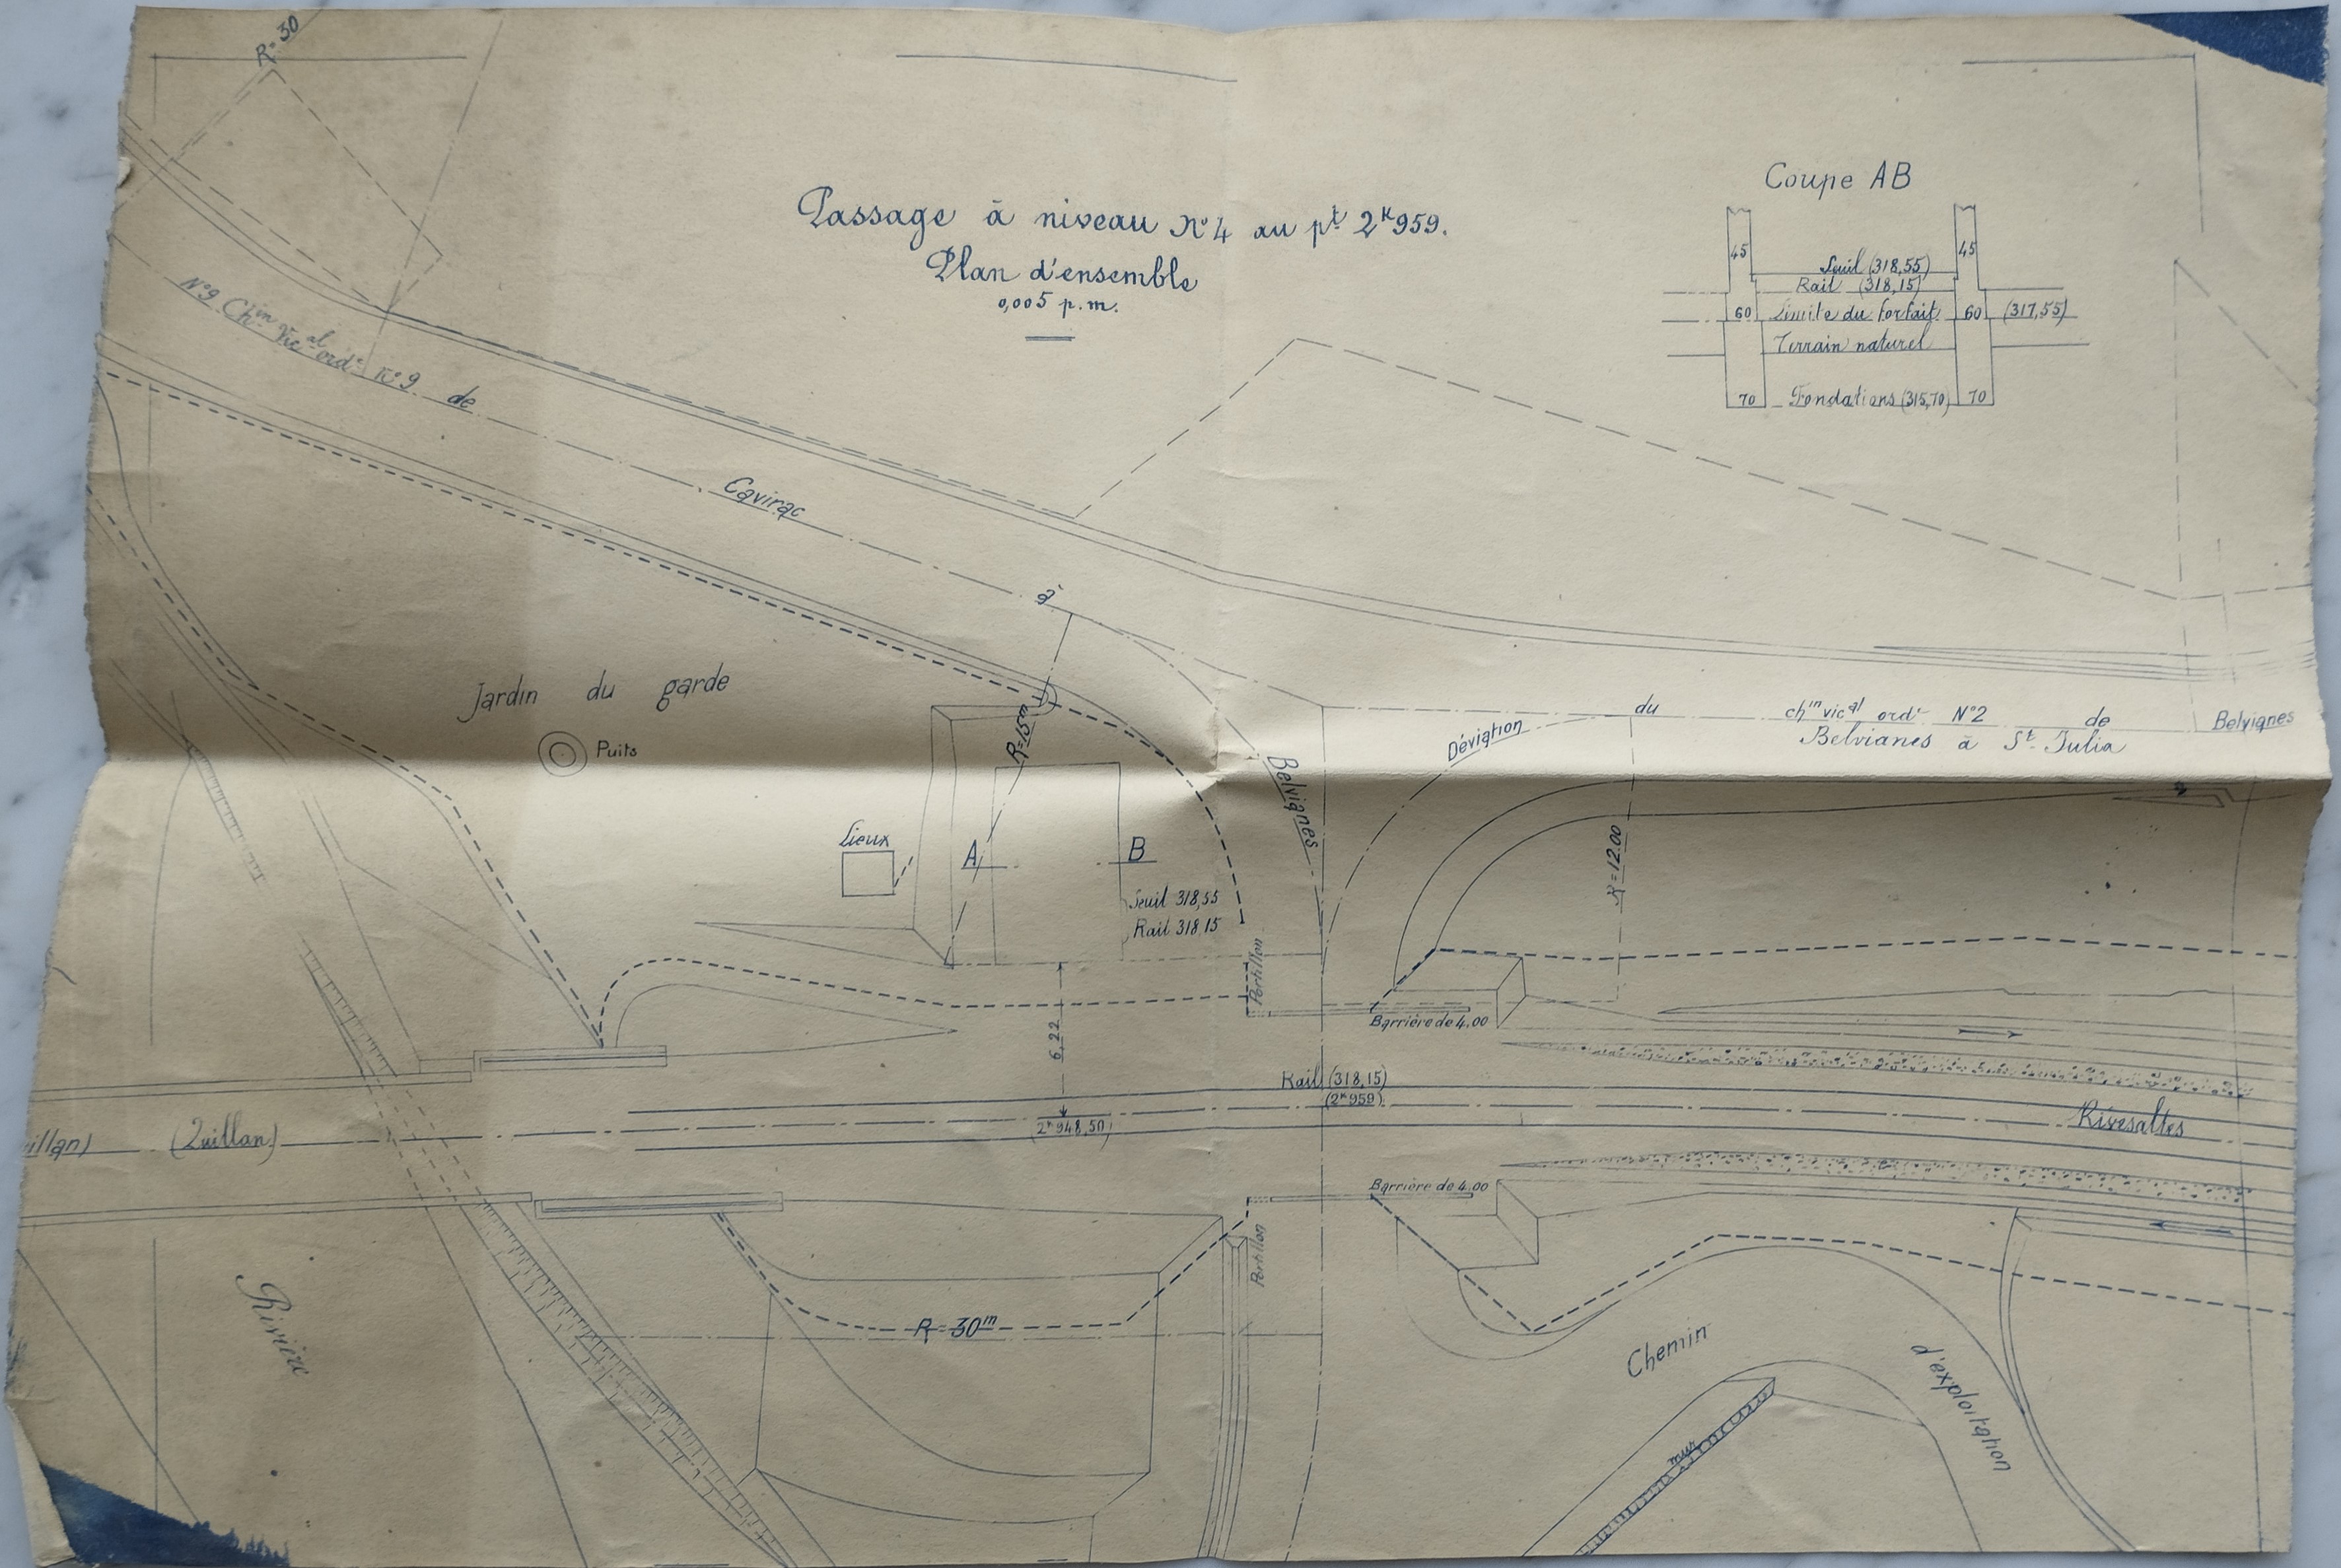 R = 30
Passage à niveau N° 4 au pt 2K959.
Plan d'ensemble
0,005 p.m.
Coupe AB
45
45
Seuil (318,55)
Rail (318,15)
60
Limite du forfait
60
(317,55)
Terrain naturel
70
Fondations (315,70)
70
N°9 Chin Vical ordre N°9 de
Cavirac
à
Belvianes
Jardin du garde
Puits
R=15m
Lieux
A
B
Seuil 318,55
Rail 318,15
Déviation
du
chin vical ordre N°2 de
Belvianes
Belvianes à St Julia
R=12.00
Portillon
Barrière de 4.00
6,22
Rail (318,15)
(2K959)
(2K948,50)
illan)
(Quillan)
Rivesaltes
Barrière de 4.00
Portillon
Rivière
R = 30m
Chemin
d'exploitation
mur